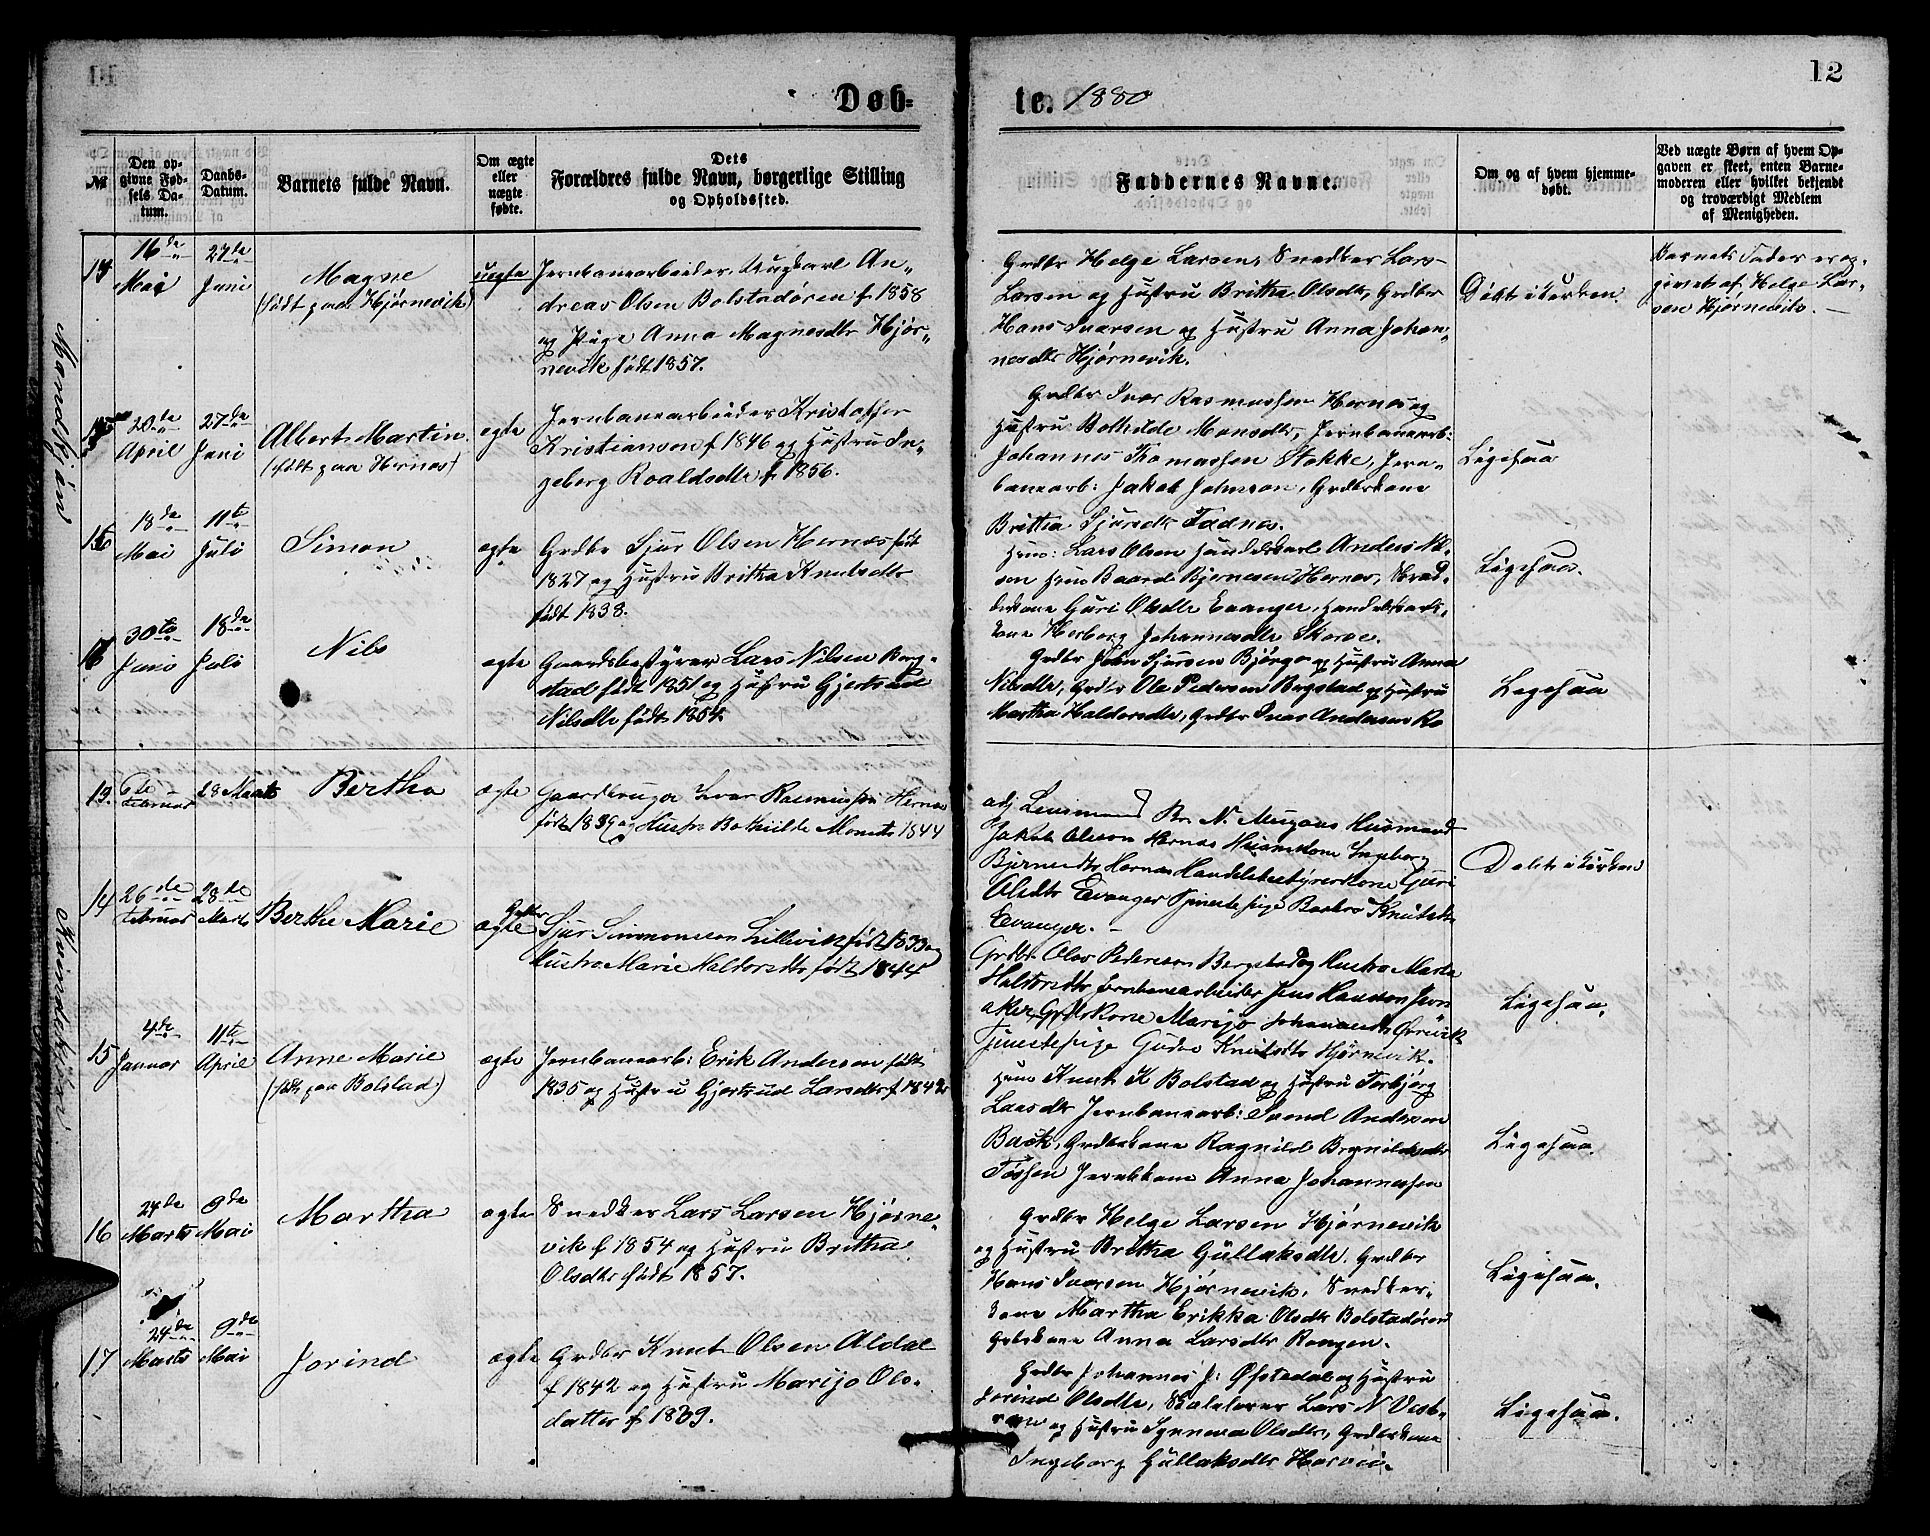 12
Døb-
te. 1880
№
Den op-
givne Fød-
sels Da-
tum.
Daabs-
Datum.
Barnets fulde Navn.
Om ægte
eller
uægte
fødte.
Dets
Forældres fulde Navn, borgerlige Stilling
og Opholdssted.
Faddernes Navne.
Om og af hvem hjemme-
døbt.
Ved uægte Børn af hvem Op-
gaven er skeet, enten Barne-
moderen eller hvilket bekjendt
og troværdigt Medlem
af Menigheden.
Mandkjøn
14
16de
Mai
27de
Juni
Magne
(født paa Hjørnevik)
uegte
Jernbanearbeider, Ungkarl An-
dreas Olsen Bolstadøren f. 1858
og Pige Anna Magnesdtr Hjør-
nevik født 1857.
Grdbr Helge Larsen, Snedker Lars
Larsen og Hustru Britha Olsdtr, Grdbr
Hans Ivarsen og Hustru Anna Johan-
nesdtr Hjørnevik.
Døbt i Kirken
Barnets Fader er op-
givet af Helge Lar-
sen Hjørnevik. —
20de
April
27de
Juni
Albert Martin
(født paa Hernes)
egte
Jernbanearbeider Kristoffer
Kristiansen f 1846 og Hustru In-
geborg Roaldsdtr f. 1856.
Grdbr Ivar Rasmussen Hernes og
Hustru Bothilde Monsdtr, Jernbanearb:
Johannes Thomassen Stokke, Jern-
banearb: Jakob Johnson, Grdbrkone
Britha Sjursdtr Fadnes.
Ligesaa
15
18de
Mai
11te
Juli
Simon
egte
Grdbr Sjur Olsen Hernes født
1827 og Hustru Britha Knutsdtr
født 1838.
Hmd: Lars Olsen Handelskarl Anders Nil-
sen Hmd Baard Bjernesen Hernes,
Guri Olsdtr Evanger, Handelskarls-
kone Herborg Johannesdtr Skorve.
Ligesaa.
16
30te
Juni
18de
Juli
Nils
egte
Gaardsbestyrer Lars Nilsen Berg-
stad født 1851 og Hustru Gjertrud
Nilsdtr født 1854.
Grdbr John Sjursen Bjørgo og Hustru Anna
Nilsdtr, Grdbr Ole Pedersen Bergstad og Hustru
Martha Haldorsdtr, Grdbr Ivar Andersen Ro
Ligesaa
Kvindekjøn
13.
6te
Februar
28 Marts
Bertha
egte
Gaardbruger Ivar Rasmussen Hernes
født 1839 og Hustro Bothilde Monsdtr 1844
adj Lensmand Br. N. Mugaas Husmand
Jakob Olsson Hernes Huusmkone Ingeborg
Bjernesdtr Hernes Handelsbestyrerkone Guri
Olsdtr Evanger Tjenestepige Barbro Knutsdtr
Evanger. —
Døbt i Kirken
14
26de
Februar
28de
Marts
Berthe Marie
egte
Grdbr
Sjur Simmonsson Lillevik født 1833 og
Hustro Marie Haldorsdtr født 1844
Grdbr. Olav Pederson Bergstad og Hustro Marta
Halstensdtr Jernbanearbeider Jens Hansen
aker, Grdbrkone Marijo Johannesdtr
Tjenestepige Gudve Knutsdtr Hjørnevik.
Ligesaa.
15
4de
Januar
11te
April
Anne Marie
(født paa Bolstad)
egte
Jernbanearb: Erik Anderson født
1835 og Hustru Gjertrud Larsdtr f. 1842
Hmd Knut K Bolstad og Hustru Torbjørg
Larsdtr Jernbanearb: Svend Anderson
Bask, Grdbrkone Ragnild Brynildsdtr
Føssen Jernbkone Anna Johannessen
Ligesaa.
16
24de
Marts
9de
Mai
Martha
egte
Snedker Lars Larsen Hjørne-
vik f 1854 og Hustru Britha
Olsdtr født 1857.
Grdbr Helge Larsen Hjørnevik
og Hustru Britha Gullaksdtr, Grdbr
Hans Ivarsen Hjørnevik, Snedker-
kone Martha Erikka Olsdtr Bolstadøren
Grdbrkone Anna Larsdtr Rongen.
Ligesaa.
17
24de
Marts
9de
Mai
Jorind
egte
Grdbr Knut Olsen Aldal
f 1842 og Hustru Marijo Ols-
datter f. 1839.
Grdbr Johannes J: Øfstedal og Hustru
Jorind Olsdtr, Skolelærer Lars N. Vest-
og Hustru Synneva Olsdtr, Grdbrkone
Ingeborg Gullaksdtr Horvei.
Ligesaa.